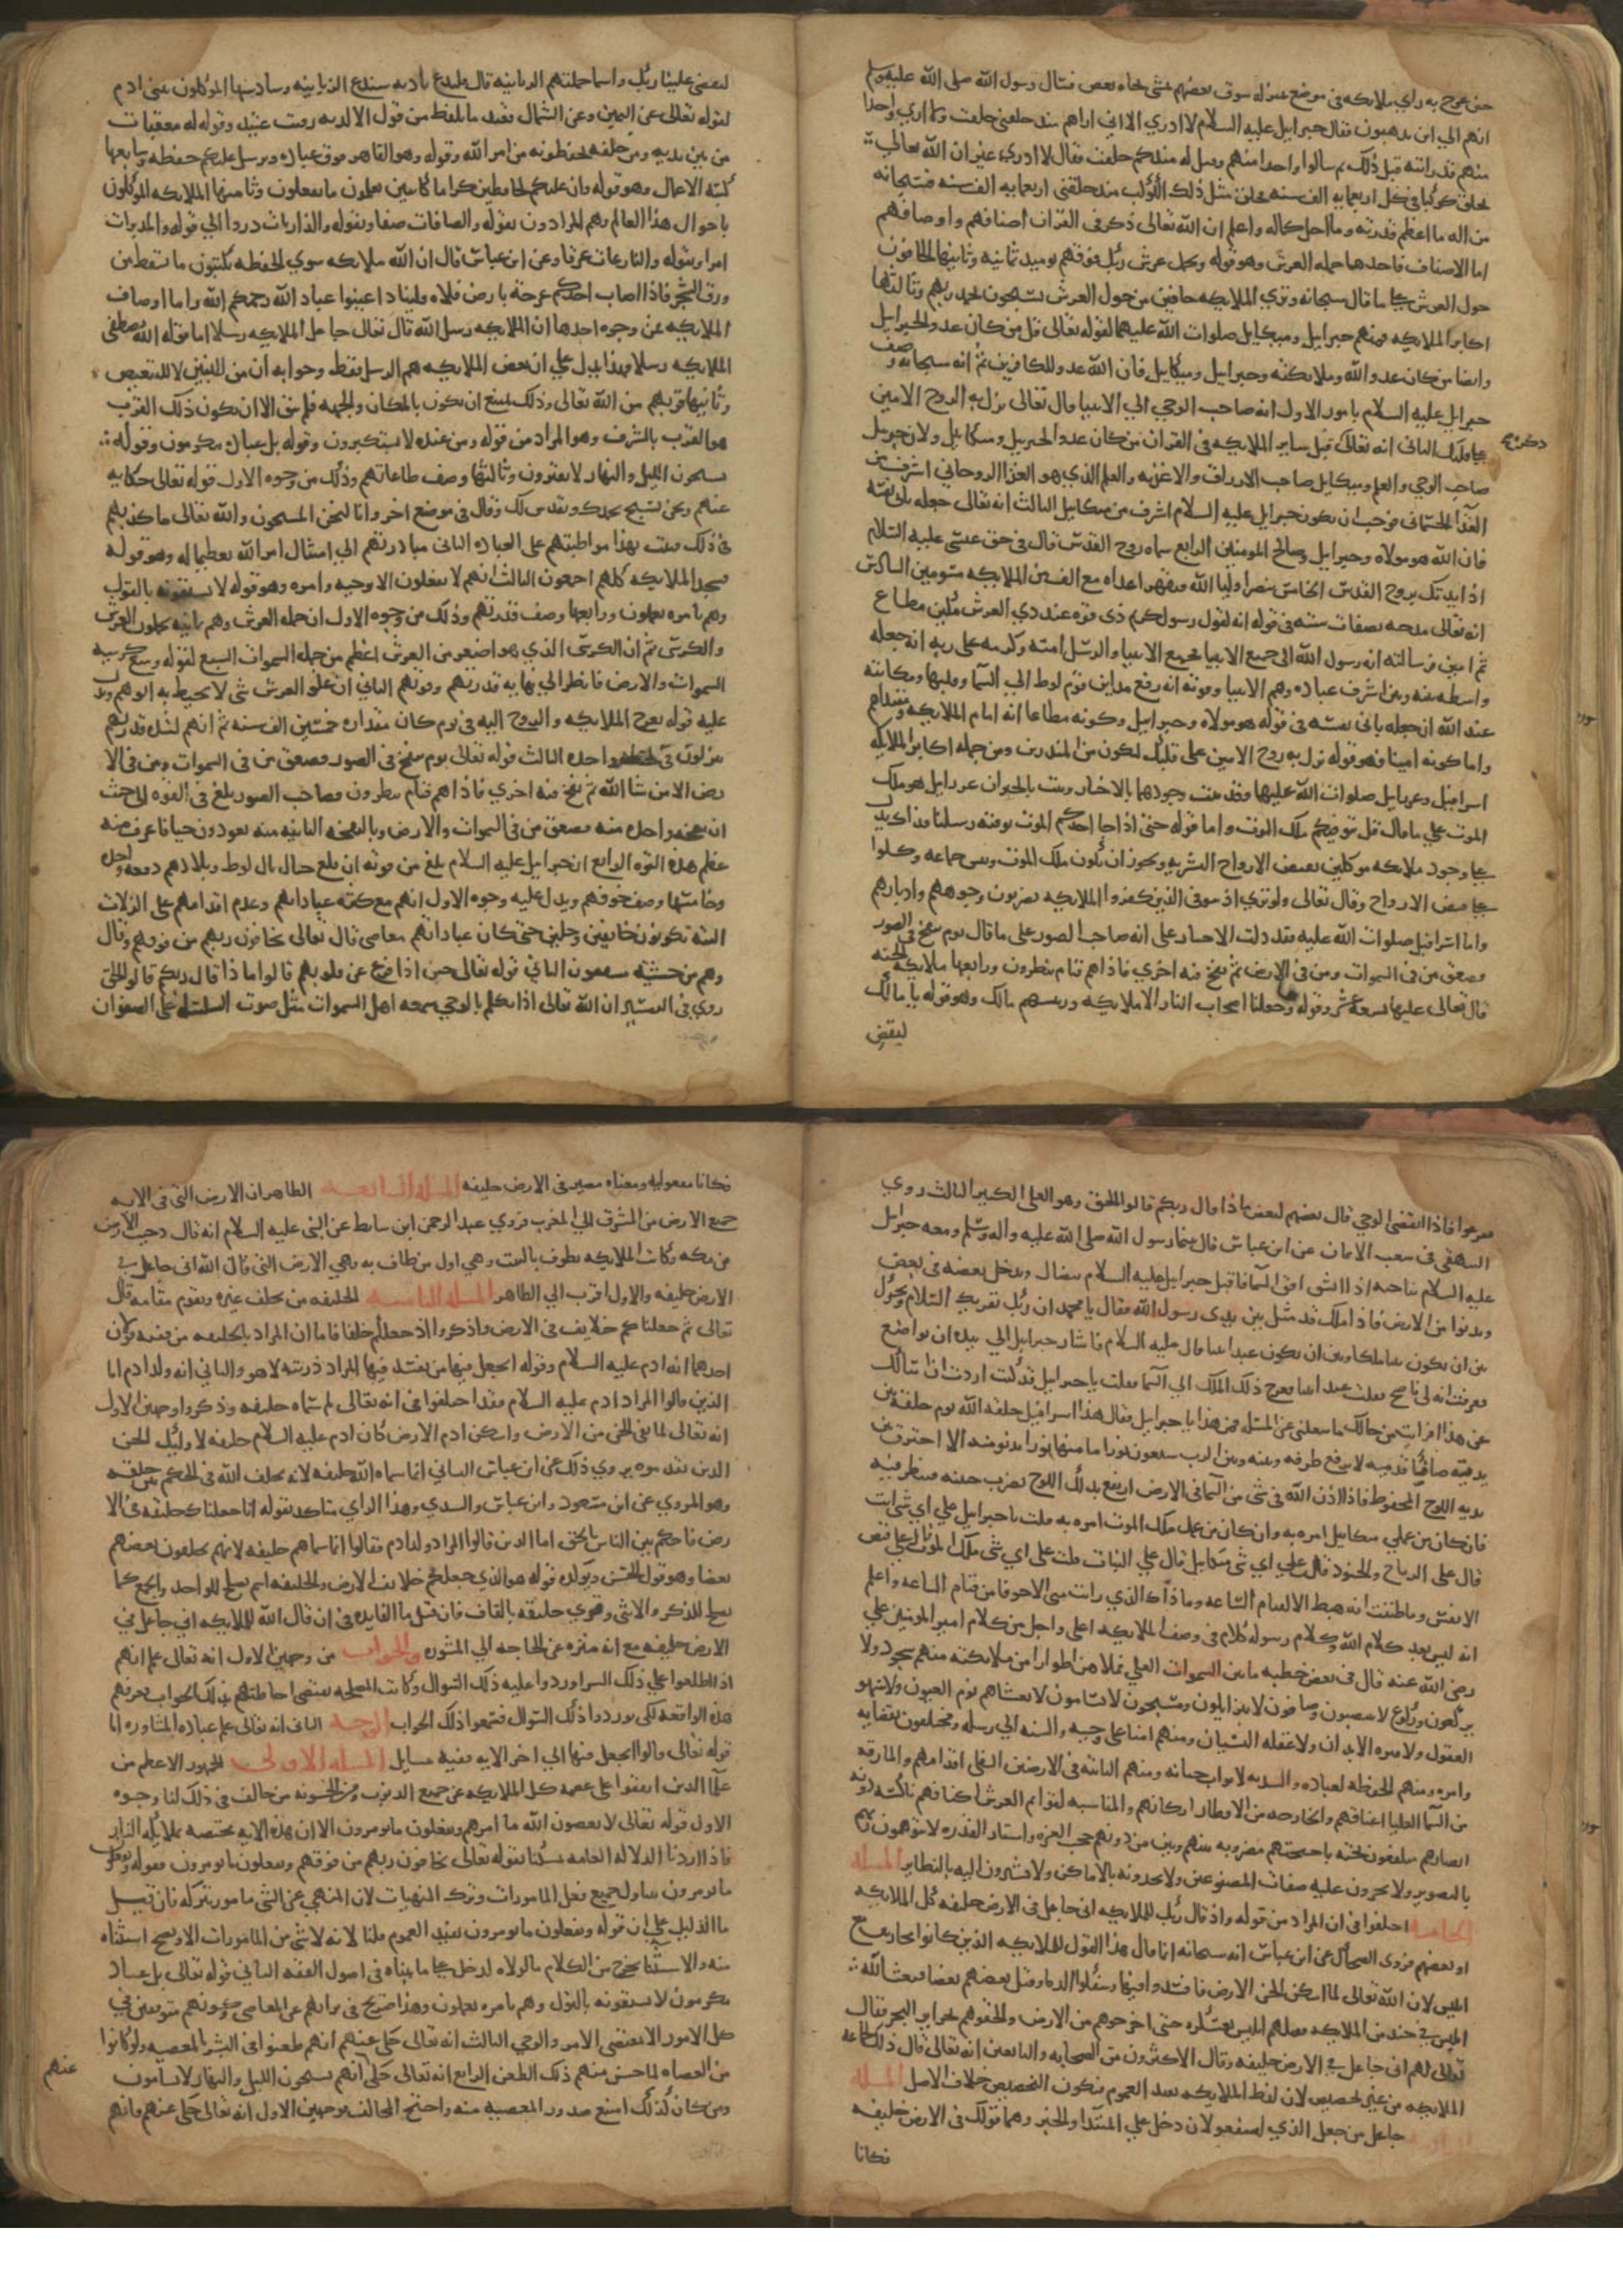 حين عرج به راي ملايكه في موضع بمنزله سوق بعضهم يمشي تجاه بعض فسال رسول الله صلى الله عليه وسلم
انهم الي اين يذهبون فقال جبرايل عليه السلام لا ادري الا اني اراهم منذ خلقت ولا اري واحدا
منهم قد رايته قبل ذلك ثم سالوا واحدا منهم وقيل له منذ كم خلقت فقال لا ادري غير ان الله تعالى
يخلق كوكبا في كل اربعمايه الف سنه فخلق مثل ذلك الكوكب منذ خلقني اربعمايه الف سنه فسبحانه
من اله ما اعظم قدرته وما اجل كماله واعلم ان الله تعالى ذكر في القران اصنافهم واوصافهم
اما الاصناف فاحدها حمله العرش وهو قوله ويحمل عرش ربك فوقهم يوميذ ثمانيه وثانيها الحافون
حول العرش كما قال سبحانه وتري الملايكه حافين من حول العرش يسبحون بحمد ربهم وثالثها
اكابر الملايكه فمنهم جبرايل وميكايل صلوات الله عليهما لقوله تعالى قل من كان عدوا لجبرايل
وايضا من كان عدوا لله وملايكته وجبرايل وميكايل فان الله عدو للكافرين ثم انه سبحانه وصف
جبرايل عليه السلام بامور الاول انه صاحب الوحي الي الانبيا قال تعالى نزل به الروح الامين
علي قلبك الثاني انه تعالى ذكره قبل ساير الملايكه في القران من كان عدوا لجبريل وميكايل ولان جبريل
صاحب الوحي والعلم وميكايل صاحب الارزاق والاغذيه والعلم الذي هو الغذا الروحاني اشرف من
الغذا الجسماني فوجب ان يكون جبرايل عليه السلام اشرف من ميكايل الثالث انه تعالى جعله ثاني نفسه
فان الله هو مولاه وجبرايل وصالح المومنين الرابع سماه روح القدس قال في حق عيسى عليه السلام
اذ ايدتك بروح القدس الخامس ينصر اوليا الله ويقهر اعداه مع الف من الملايكه مسومين السادس
انه تعالى مدحه بصفات سته في قوله انه لقول رسول كريم ذي قوه عند ذي العرش مكين مطاع
ثم امين فرسالته انه رسول الله الى جميع الانبيا فجميع الانبيا والرسل امته وكرمه على ربه انه جعله
واسطه بينه وبين اشرف عباده وهم الانبيا وقوته انه رفع مداين قوم لوط الي السما وقلبها ومكانته
عند الله ان جعله ثاني نفسه في قوله هو مولاه وجبرايل وكونه مطاعا انه امام الملايكه ومقتداهم
واما كونه امينا فهو قوله نزل به روح الامين على قلبك لتكون من المنذرين ومن جمله اكابر الملايكه
اسرافيل وعزرايل صلوات الله عليهما وقد ثبت وجودهما بالاخبار وثبت بالخبر ان عزرايل هو ملك
الموت علي ما قال قل يتوفيكم ملك الموت واما قوله حتى اذا جا احدكم الموت توفته رسلنا فذاك يدل
علي وجود ملايكه موكلين بقبض الارواح البشريه ويجوز ان يكون ملك الموت رييس جماعه وكلوا
علي قبض الارواح وقال تعالى ولو تري اذ يتوفي الذين كفروا الملايكه يضربون وجوههم وادبارهم
واما اسرافيل صلوات الله عليه فقد دلت الاخبار على انه صاحب الصور على ما قال يوم ينفخ في الصور
وصعق من في السموات ومن في الارض ثم نفخ فيه اخري فاذا هم قيام ينظرون ورابعها ملايكه الجنه
قال تعالى عليها تسعه عشر وقوله وجعلنا اصحاب النار الا ملايكه ورييسهم مالك وهو قوله يا مالك
ليقض
ليقض علينا ربك واسما جملتهم الزبانيه قال فليدع ناديه سندع الزبانيه وسادسها الموكلون ببني ادم
لقوله تعالى عن اليمين وعن الشمال قعيد ما يلفظ من قول الا لديه رقيب عتيد وقوله له معقبات
من بين يديه ومن خلفه يحفظونه من امر الله وقوله وهو القاهر فوق عباده ويرسل عليكم حفظه وسابعها
كتبه الاعمال وهو قوله وان عليكم لحافظين كراما كاتبين يعلمون ما تفعلون وثامنها الملايكه الموكلون
باحوال هذا العالم وهم المرادون بقوله والصافات صفا وبقوله والذاريات ذروا الي قوله والمدبرات
امرا وبقوله والنازعات غرقا وعن ابن عباس قال ان الله ملايكه سوي الحفظه يكتبون ما يسقط من
ورق الشجر فاذا اصاب احدكم عرجه بارض فلاه فليناد اعينوا عباد الله رحمكم الله واما اوصاف
الملايكه فمن وجوه احدها ان الملايكه رسل الله قال تعالى جاعل الملايكه رسلا اما قوله الله يصطفي
من الملايكه رسلا فهذا يدل علي ان بعض الملايكه هم الرسل فقط وجوابه ان من للتبيين لا للتبعيض
وثانيها قربهم من الله تعالى وذلك يمتنع ان يكون بالمكان والجهه فلم يبق الا ان يكون ذلك القرب
هو القرب بالشرف وهو المراد من قوله ومن عنده لا يستكبرون وقوله بل عباد مكرمون وقوله
يسبحون الليل والنهار لا يفترون وثالثها وصف طاعاتهم وذلك من وجوه الاول قوله تعالى حكايه
عنهم ونحن نسبح بحمدك ونقدس لك وقال في موضع اخر وانا لنحن المسبحون والله تعالى ما كذبهم
في ذلك فثبت بهذا مواظبتهم على العباده الثاني مبادرتهم الي امتثال امر الله تعظيما له وهو قوله
فسجد الملايكه كلهم اجمعون الثالث انهم لا يفعلون الا بوحيه وامره وهو قوله لا يسبقونه بالقول
وهم بامره يعملون ورابعها وصف قدرتهم وذلك من وجوه الاول ان حمله العرش وهم ثمانيه يحملون العرش
والكرسي ثم ان الكرسي الذي هو اصغر من العرش اعظم من جمله السموات السبع لقوله وسع كرسيه
السموات والارض فانظر الي نهايه قدرتهم وقوتهم الثاني ان علو العرش شي لا يحيط به الوهم ويدل
عليه قوله تعرج الملايكه والروح اليه في يوم كان مقداره خمسين الف سنه ثم انهم لشده قدرتهم
ينزلون في لحظه واحده الثالث قوله تعالى يوم ينفخ في الصور فصعق من في السموات ومن في الا
رض الا من شا الله ثم نفخ فيه اخري فاذا هم قيام ينظرون فصاحب الصور يبلغ في القوه الى حيث
ان بنفخه واحده منه يصعق من في السموات والارض وبالنفخه الثانيه منه يعودون احيا فاعرف منه
عظم هذه القوه الرابع ان جبرايل عليه السلام بلغ من قوته ان قلع جبال ال لوط وبلادهم دفعه واحده
وخامسها وصف خوفهم ويدل عليه وجوه الاول انهم مع كثره عباداتهم وعدم اقدامهم على الزلات
البته يكونون خايفين وجلين حتى كان عباداتهم معاصي قال تعالى يخافون ربهم من فوقهم وقال
وهم من خشيته مشفقون الثاني قوله تعالى حتى اذا فزع عن قلوبهم قالوا ماذا قال ربكم قالوا الحق
روي في التفسير ان الله تعالى اذا تكلم بالوحي سمعه اهل السموات مثل صوت السلسله على الصفوان
ففزعوا فاذا انقضى الوحي قال بعضهم لبعض ماذا قال ربكم قالوا الحق وهو العلي الكبير الثالث روي
البيهقي في شعب الايمان عن ابن عباس قال بينما رسول الله صلى الله عليه واله وسلم ومعه جبرايل
عليه السلام بناحيه اذ انشق افق السما فاقبل جبرايل عليه السلام يتضال ويدخل بعضه في بعض
ويدنوا من الارض فاذا ملك قد مثل بين يدي رسول الله فقال يا محمد ان ربك يقريك السلام ويخيرك
بين ان يكون نبيا ملكا وبين ان يكون عبدا نبيا قال عليه السلام فاشار جبرايل الي بيده ان تواضع
فعرفت انه لي ناصح فقلت عبدا نبيا فعرج ذلك الملك الي السما فقلت يا جبرايل قد كنت اردت ان اسالك
عن هذا فرايت من حالك ما شغلني عن المسله فمن هذا يا جبرايل فقال هذا اسرافيل خلقه الله يوم خلقه بين
يديه صافا قدميه لا يرفع طرفه وبينه وبين الرب سبعون نورا ما منها نور يدنو منه الا احترق بين
يديه اللوح المحفوظ فاذا اذن الله في شي من السما في الارض ارتفع ذلك اللوح يضرب جبينه فينظر فيه
فان كان من عملي ميكايل امره به وان كان من عمل ملك الموت امره به قلت يا جبرايل علي اي شي انت
قال على الرياح والجنود قال علي اي شي ميكايل قال علي النبات قلت على اي شي ملك الموت قال علي قبض
الانفس وما ظننت انه هبط الا لقيام الساعه وما ذاك الذي رايت مني الا خوفا من قيام الساعه واعلم
انه ليس بعد كلام الله وكلام رسوله كلام في وصف الملايكه اعلى واجل من كلام امير المومنين علي
رضي الله عنه قال في بعض خطبه ما بين السموات العلي فملاهن اطوارا من ملايكته منهم سجود لا
يركعون وركوع لا ينتصبون وصافون لا يتزايلون ومسبحون لا يسامون لا يغشاهم نوم العيون ولا سهو
العقول ولا فتره الابدان ولا غفله النسيان ومنهم امنا على وحيه والسنه الي رسله ومختلفون بقضايه
وامره ومنهم الحفظه لعباده والسدنه لابواب جنانه ومنهم الثابته في الارضين السفلى اقدامهم والمارقه
من السما العليا اعناقهم والخارجه من الاقطار اركانهم والمناسبه لقوايم العرش اكتافهم ناكسه دونه
ابصارهم متلفعون تحته باجنحتهم مضروبه بينهم وبين من دونهم حجب العزه واستار القدره لا يتوهمون ربهم
بالتصوير ولا يجرون عليه صفات المصنوعين ولا يحدونه بالاماكن ولا يشيرون اليه بالنظاير المسله
الخامسه اختلفوا في ان المراد من قوله واذ قال ربك للملايكه اني جاعل في الارض خليفه كل الملايكه
او بعضهم فروي الضحاك عن ابن عباس انه سبحانه انما قال هذا القول للملايكه الذين كانوا محاربين مع
ابليس لان الله تعالى لما اسكن الجن الارض فافسدوا فيها وسفكوا الدما وقتل بعضهم بعضا فبعث الله
ابليس في جند من الملايكه فقتلهم ابليس بعسكره حتى اخرجوهم من الارض والحقوهم بجزاير البحر فقال
تعالى لهم اني جاعل في الارض خليفه وقال الاكثرون من الصحابه والتابعين انه تعالى قال ذلك لجماعه
الملايكه من غير تخصيص لان لفظ الملايكه يفيد العموم فيكون التخصيص خلاف الاصل المسله
جاعل من جعل الذي له مفعولان دخل علي المبتدا والخبر وهما قولك في الارض خليفه
فكانا
فكانا مفعوليه ومعناه مصير في الارض خليفه المسله السابعه الظاهر ان الارض التي في الايه
جميع الارض من المشرق الي المغرب وروي عبد الرحمن ابن سابط عن النبي عليه السلام انه قال دحيت الارض
من مكه وكانت الملايكه تطوف بالبيت وهي اول من طاف به وهي الارض التي قال الله اني جاعل في
الارض خليفه والاول اقرب الي الظاهر المسله الثامنه الخليفه من يخلف غيره ويقوم مقامه قال
تعالى ثم جعلناكم خلايف في الارض واذكروا اذ جعلكم خلفا فاما ان المراد بالخليفه من ففيه قولان
احدهما انه ادم عليه السلام وقوله اتجعل فيها من يفسد فيها المراد ذريته لا هو والثاني انه ولد ادم اما
الذين قالوا المراد ادم عليه السلام فقد اختلفوا في انه تعالى لم سماه خليفه وذكروا وجهين الاول
انه تعالى لما نفى الجن من الارض واسكن ادم الارض كان ادم عليه السلام خليفه لاوليك الجن
الذين تقدموه يروي ذلك عن ابن عباس الثاني انما سماه الله خليفه لانه يخلف الله في الحكم بين خلقه
وهو المروي عن ابن مسعود وابن عباس والسدي وهذا الراي متاكد بقوله انا جعلناك خليفه في الا
رض فاحكم بين الناس بالحق اما الذين قالوا المراد ولد ادم فقالوا انما سماهم خليفه لانهم يخلفون بعضهم
بعضا وهو قول الحسن ويوكده قوله هو الذي جعلكم خلايف الارض والخليفه اسم يصلح للواحد والجمع كما
يصلح للذكر والانثى وقري خليقه بالقاف فان قيل ما الفايده في ان قال الله للملايكه اني جاعل في
الارض خليفه مع انه منزه عن الحاجه الي المشوره والجواب من وجهين الاول انه تعالى علم انهم
اذا اطلعوا علي ذلك السر اوردوا عليه ذلك السوال وكانت المصلحه تقتضي احاطتهم بذلك الجواب فعرفهم
هذه الواقعه لكي يوردوا ذلك السوال فيسمعوا ذلك الجواب الوجه الثاني انه تعالى علم عباده المشاوره اما
قوله تعالى قالوا اتجعل فيها الي اخر الايه ففيه مسايل المسله الاولى الجمهور الاعظم من
علما الدين اتفقوا على عصمه كل الملايكه عن جميع الذنوب ومن الحشويه من خالف في ذلك لنا وجوه
الاول قوله تعالى لا يعصون الله ما امرهم ويفعلون ما يومرون الا ان هذه الايه مختصه بملايكه النار
فاذا اردنا الدلاله العامه تمسكنا بقوله تعالى يخافون ربهم من فوقهم ويفعلون ما يومرون فقوله ويفعلون
ما يومرون يتناول جميع فعل المامورات وترك المنهيات لان المنهي عن الشي مامور بتركه فان قيل
ما الدليل علي ان قوله ويفعلون ما يومرون يفيد العموم قلنا لانه لا شي من المامورات الا ويصح استثناه
منه والاستثنا يخرج من الكلام ما لولاه لدخل علي ما بيناه في اصول الفقه الثاني قوله تعالى بل عباد
مكرمون لا يسبقونه بالقول وهم بامره يعملون وهذا صريح في براتهم عن المعاصي وكونهم متوقفين في
كل الامور الا بمقتضى الامر والوحي الثالث انه تعالى حكى عنهم انهم طعنوا في البشر بالمعصيه ولو كانوا
من العصاه لما حسن منهم ذلك الطعن الرابع انه تعالى حكى عنهم انهم يسبحون الليل والنهار لا يسامون
ومن كان كذلك امتنع صدور المعصيه منه واحتج المخالف بوجهين الاول انه تعالى حكى عنهم فانهم